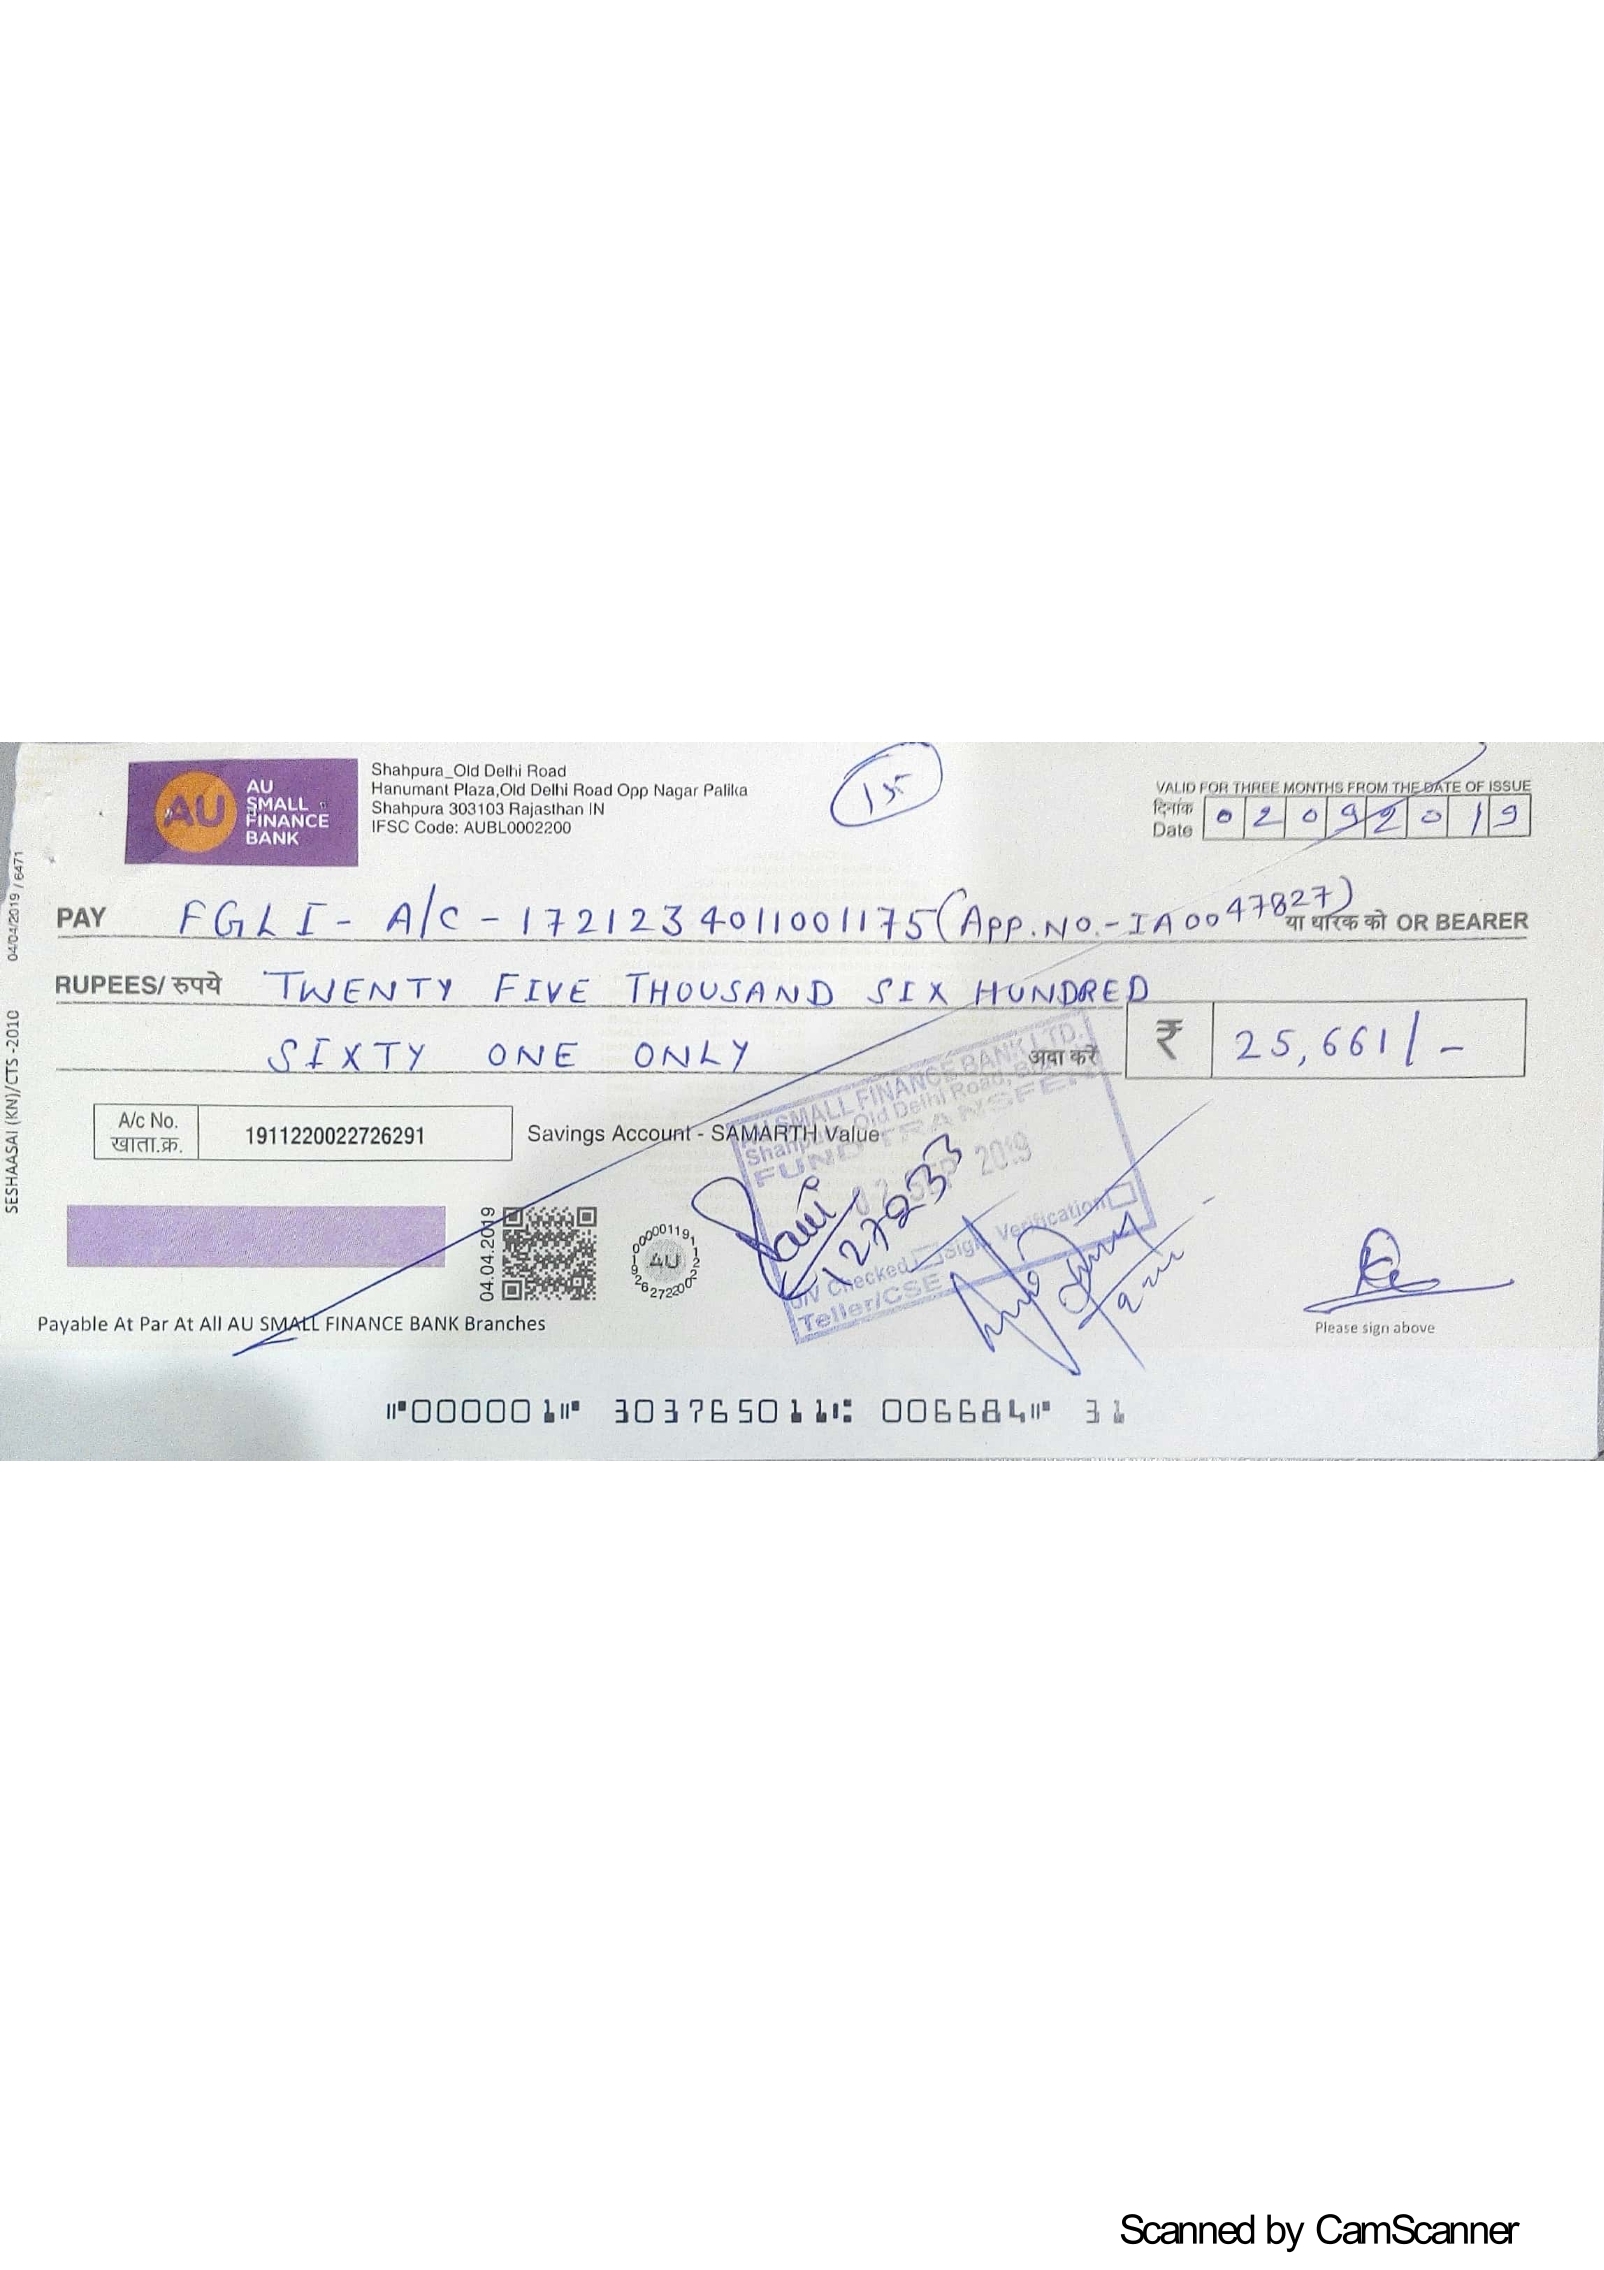 AU
AU
SMALL
FINANCE
BANK
Shahpura_Old Delhi Road
Hanumant Plaza,Old Delhi Road Opp Nagar Palika
Shahpura 303103 Rajasthan IN
IFSC Code: AUBL0002200
VALID FOR THREE MONTHS FROM THE DATE OF ISSUE
दिनांक
Date 02092019
PAY FGLI - A/C - 1721234011001175 (APP.NO.-IA0047827) या धारक को OR BEARER
RUPEES/ रुपये TWENTY FIVE THOUSAND SIX HUNDRED
SIXTY ONE ONLY अदा करें ₹ 25,661/-
A/c No.
खाता.क्र.
1911220022726291
Savings Account - SAMARTH Value
AU SMALL FINANCE BANK LTD.
Shahpura, Old Delhi Road,
FUND TRANSFER
02 SEP 2019
127233
Checked Sign Verification
Teller/CSE
04.04.2019
AU
Payable At Par At All AU SMALL FINANCE BANK Branches
Please sign above
⑈000001⑈ 303765011⑆ 006684⑈ 31
SESHAASAI (KN)/CTS -2010 04/04/2019 / 6471
Scanned by CamScanner